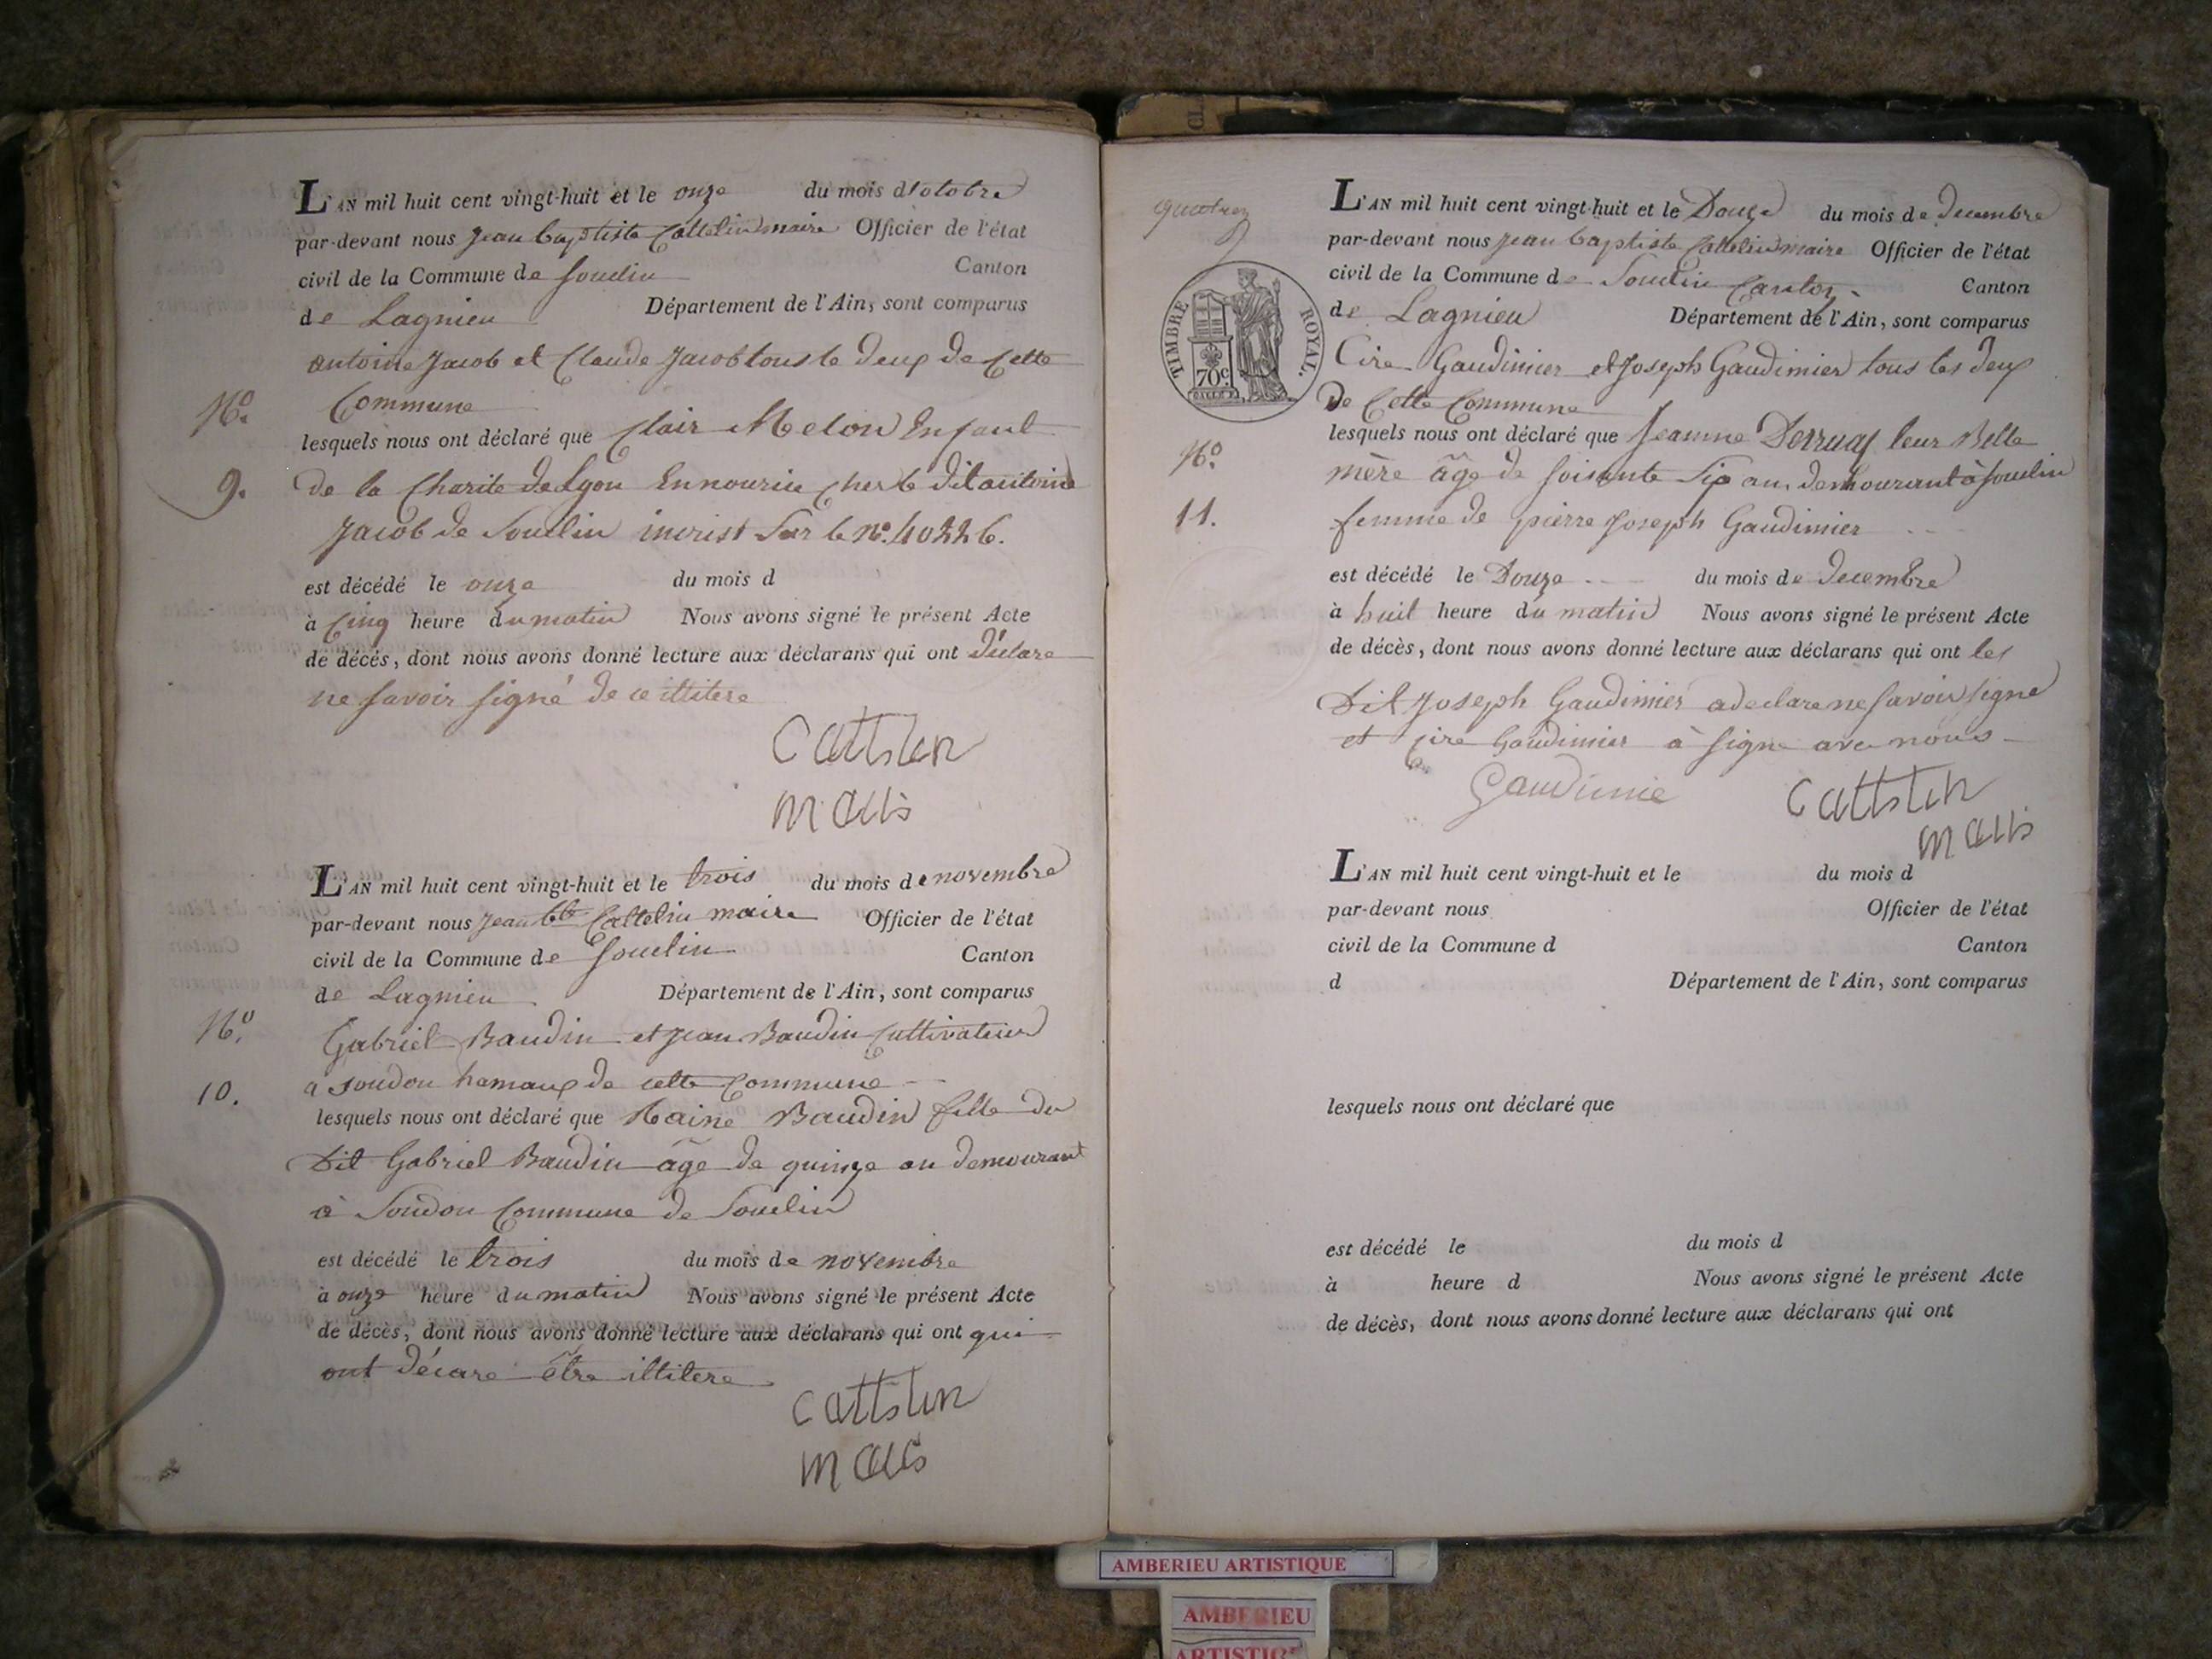 L'AN mil huit cent vingt-huit et le onze du mois d'otobre
par-devant nous jean baptiste Cattelin maire Officier de l'état
civil de la Commune de Souclin Canton
de Lagnieu Département de l'Ain, sont comparus
antoine Jacob et Claude Jacob tous le deux de Cette
Commune
No.
9.
lesquels nous ont déclaré que Clair Melon Enfant
de la Charité de Lyon En nourice chez le dit antoine
Jacob de Souclin incrist Sur le no. 40226.
est décédé le onze du mois d
à Cinq heure du matin Nous avons signé le présent Acte
de décés, dont nous avons donné lecture aux déclarans qui ont déclare
ne savoir signé de ce illitere
Cattelin
maire
L'AN mil huit cent vingt-huit et le trois du mois de novembre
par-devant nous jean bte Cattelin maire Officier de l'état
civil de la Commune de Souclin Canton
de Lagnieu Département de l'Ain, sont comparus
No.
10.
Gabriel Baudin et jean Baudin Cultivateur
a soudon hamaux de cette Commune
lesquels nous ont déclaré que Raine Baudin fille du
Dit Gabriel Baudin âge de quinze an demourant
à Soudon Commune de Souclin
est décédé le trois du mois de novembre
à onze heure du matin Nous avons signé le présent Acte
de décès, dont nous avons donné lecture aux déclarans qui ont qui
ont décare être illitere
Cattelin
maire
L'AN mil huit cent vingt-huit et le Douze du mois de decembre
par-devant nous jean baptiste Cattelin maire Officier de l'état
civil de la Commune de Souclin Canton Canton
de Lagnieu Département de l'Ain, sont comparus
TIMBRE ROYAL.
70c.
Cire Gaudimier et joseph Gaudimier tous les deux
De Cette Commune
No.
11.
lesquels nous ont déclaré que jeanne Derruaz leur Belle
mère âge de soisente Six an demourant à Souclin
femme de pierre joseph Gaudimier
est décédé le Douze du mois de decembre
à huit heure du matin Nous avons signé le présent Acte
de décès, dont nous avons donné lecture aux déclarans qui ont les
Dit joseph Gaudimier a declare ne savoir signe
et Cire Gaudimier à signe avec nous
Gaudimie
Cattelin
maire
L'AN mil huit cent vingt-huit et le du mois d
par-devant nous Officier de l'état
civil de la Commune d Canton
d Département de l'Ain, sont comparus
lesquels nous ont déclaré que
est décédé le du mois d
à heure d Nous avons signé le présent Acte
de décès, dont nous avons donné lecture aux déclarans qui ont
AMBERIEU ARTISTIQUE
AMBERIEU